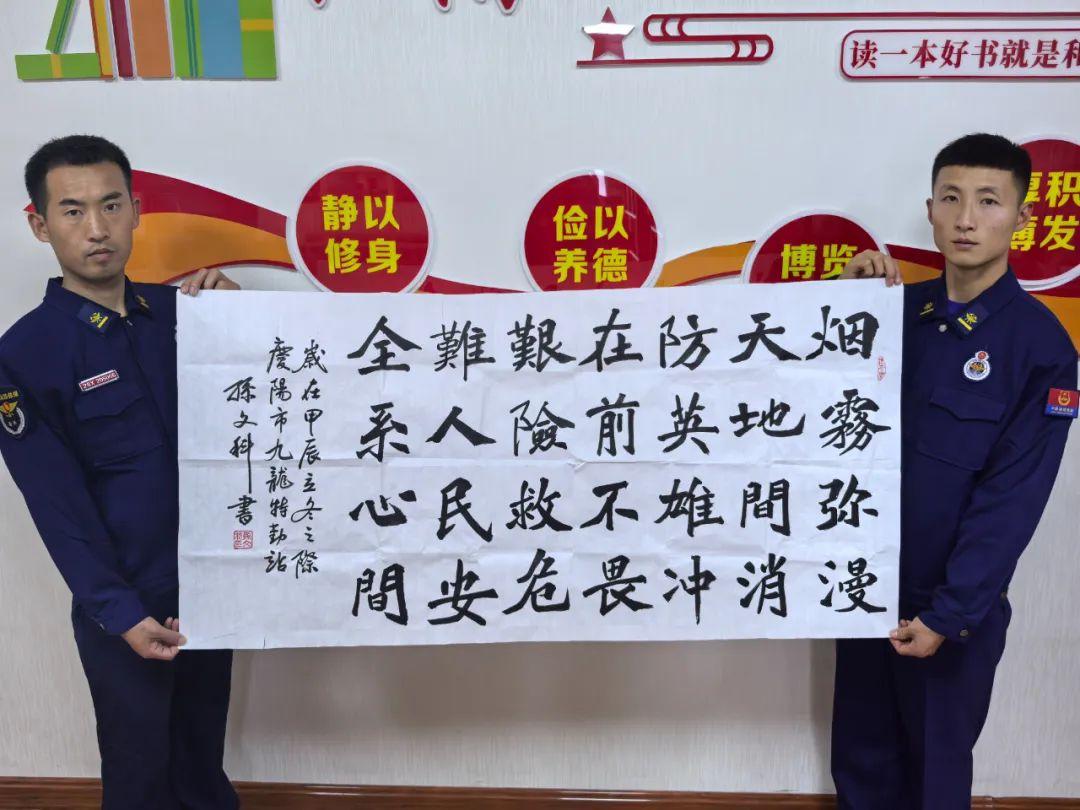 读一本好书就是和
静以
修身
俭以
养德
博览
厚积
薄发
烟霧弥漫
天地間消
防英雄冲
在前不畏
艱險救危
難人民安
全系心間
歲在甲辰立冬之際
慶陽市九龍特勤站
孫文科書